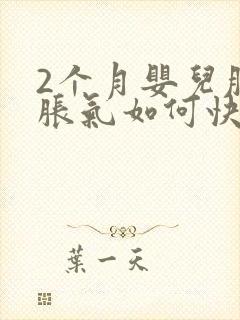 2个月嬰兒肚
脹氣如何快
葉一天